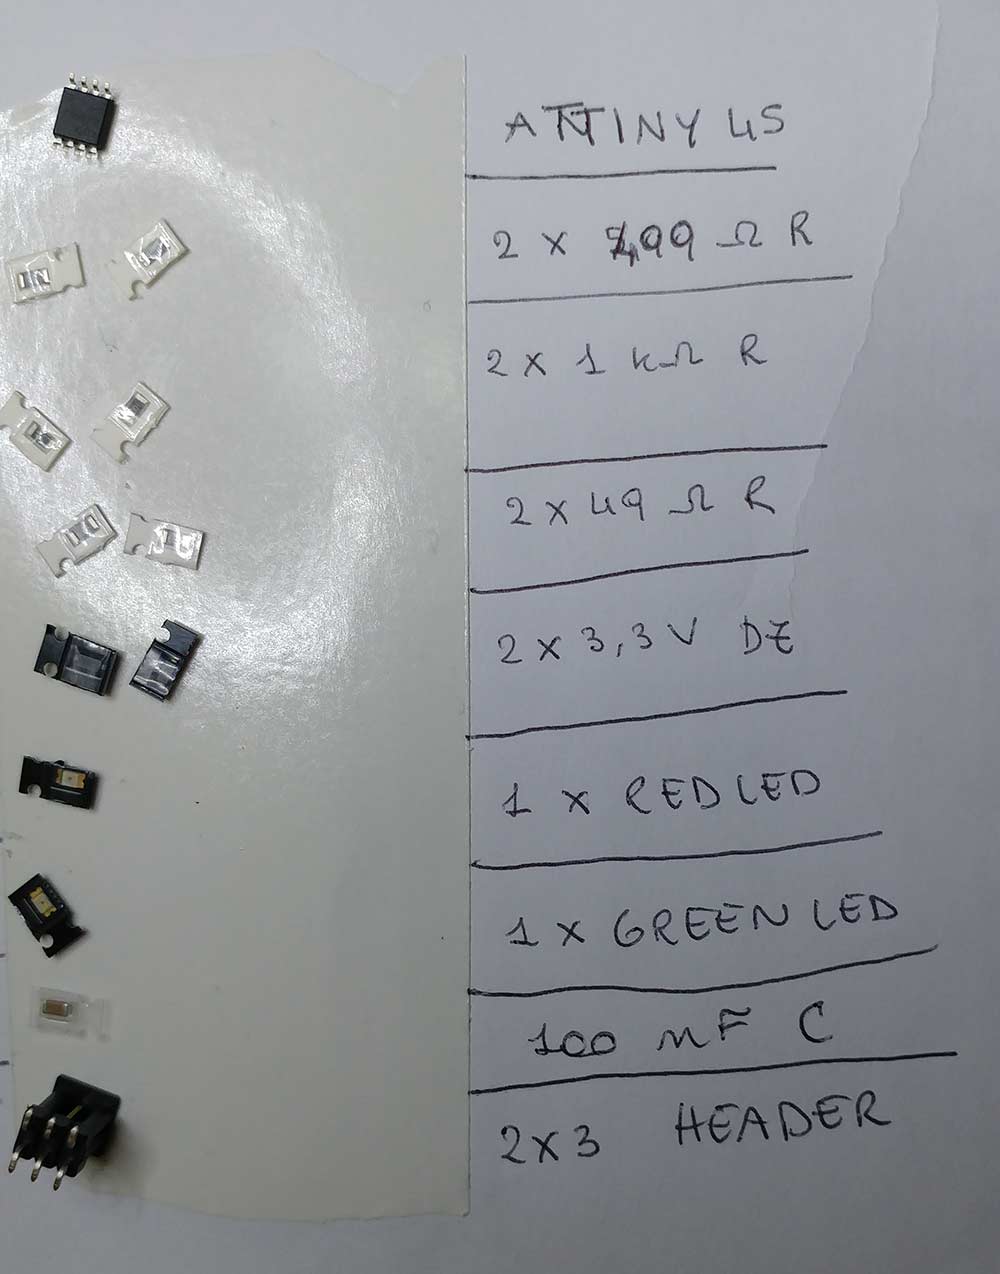 ATTINY 45
2 x 499 Ω R
2 x 1 kΩ R
2 x 49 Ω R
2 x 3,3V DZ
1 x RED LED
1 x GREEN LED
100 nF C
2x3 HEADER